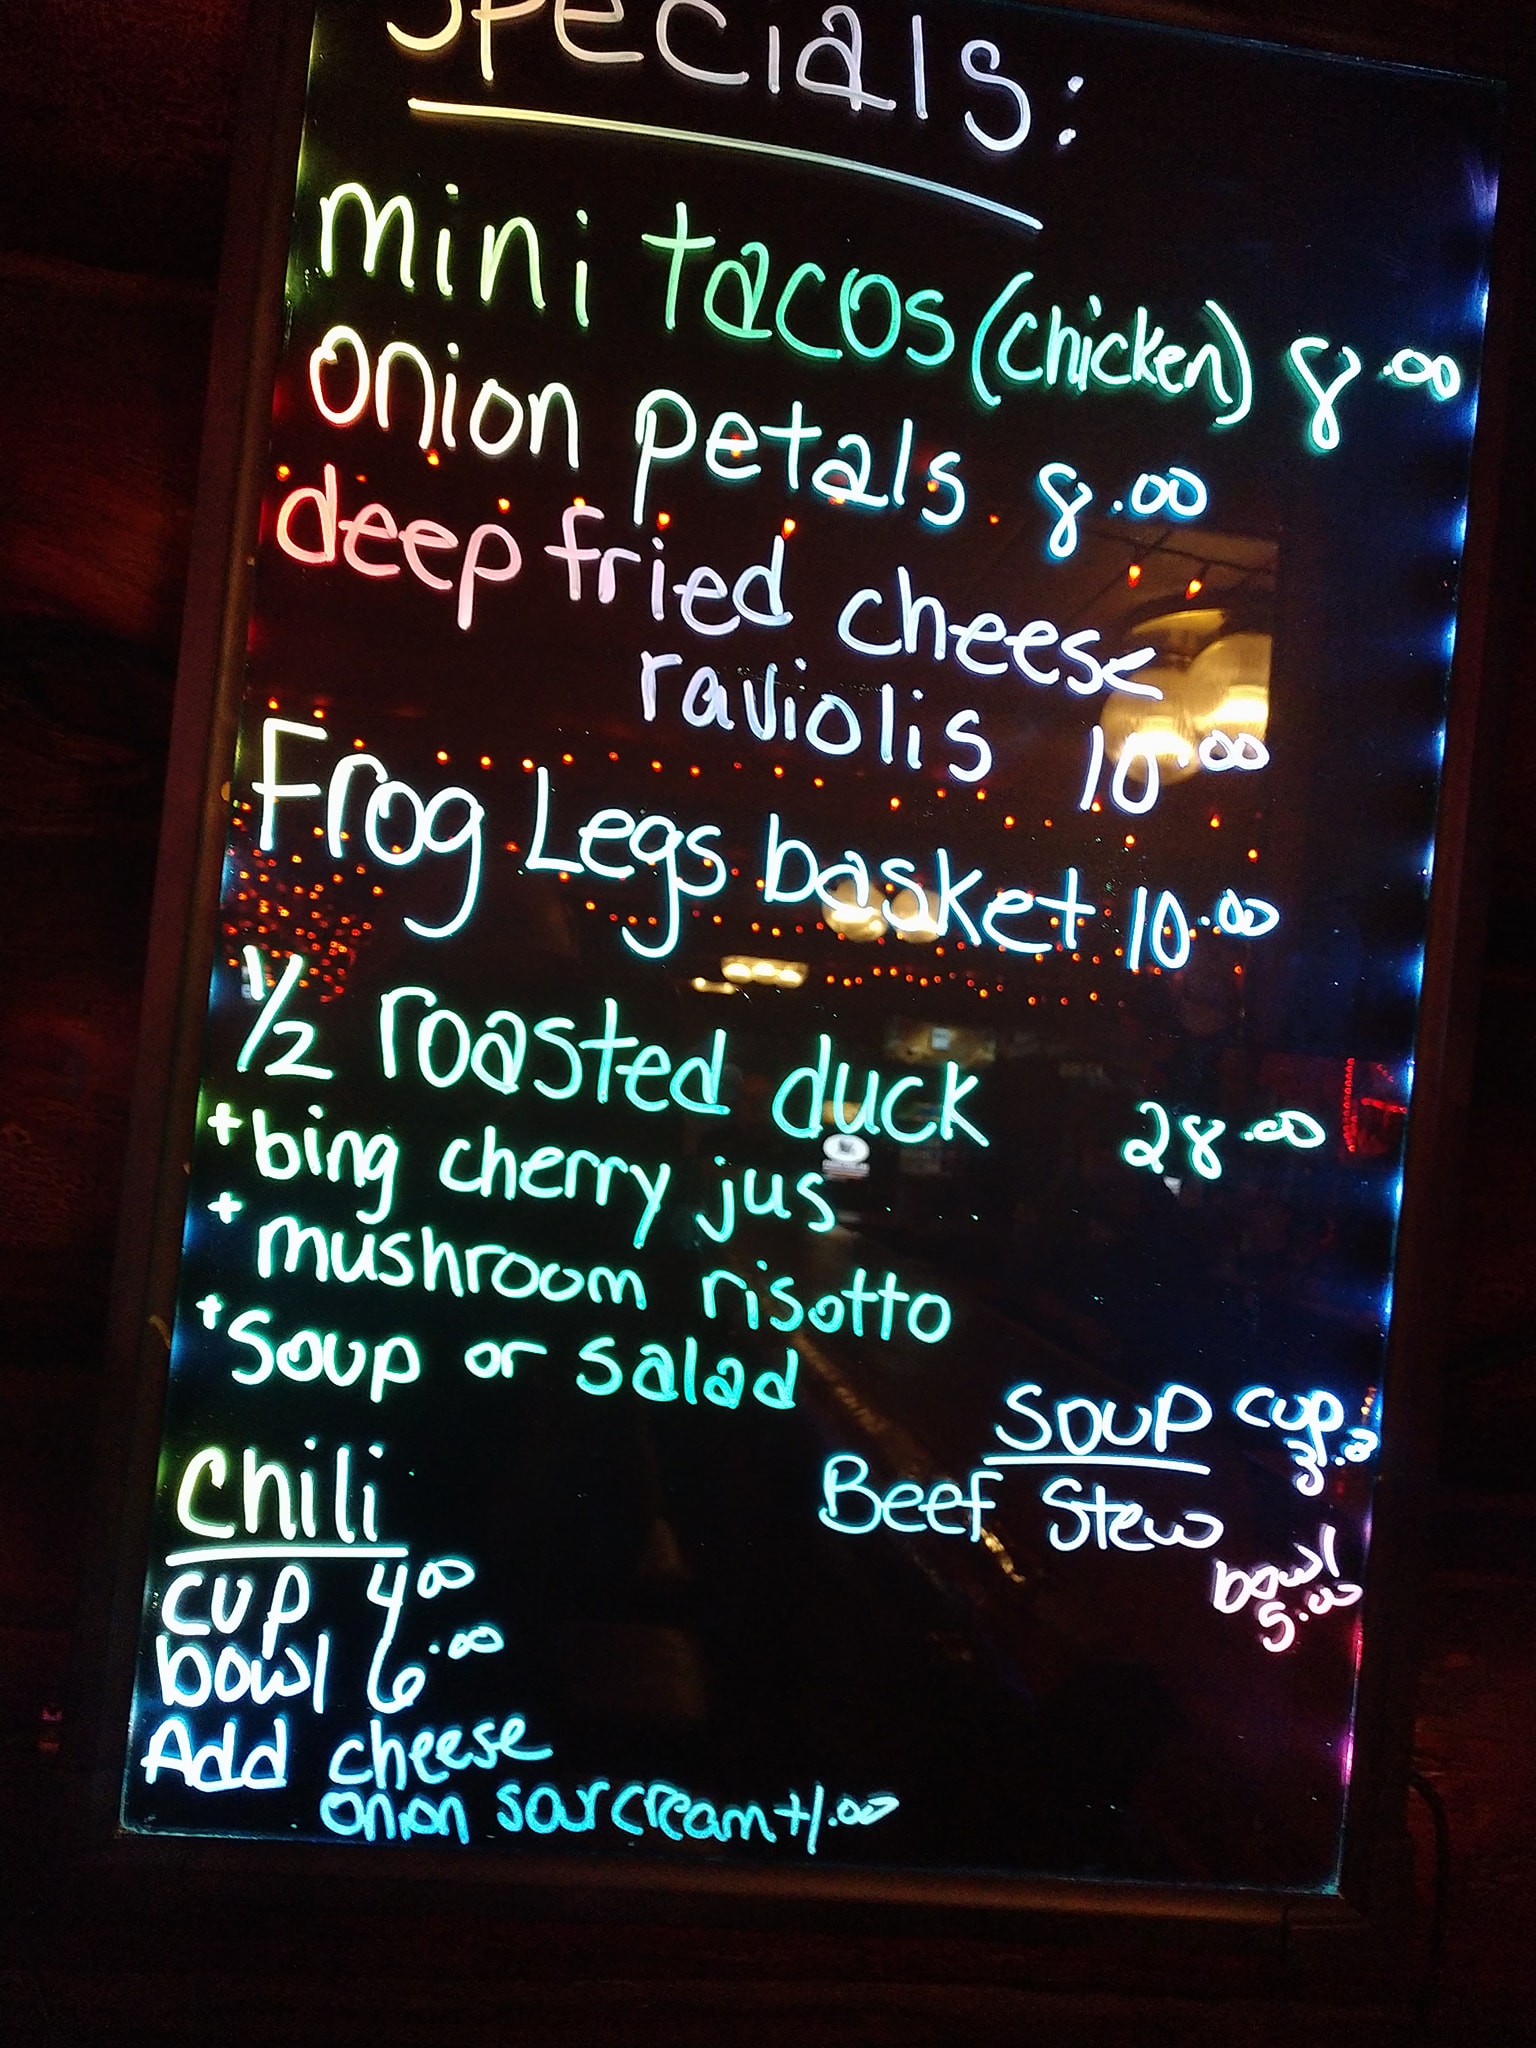 Specials:
mini tacos (chicken) 8.00
onion petals 8.00
deep fried cheese
raviolis 10.00
Frog Legs basket 10.00
1/2 roasted duck 28.00
+ bing cherry jus
+ mushroom risotto
+ Soup or salad
Soup cup
3.00
Beef Stew
bowl
5.00
Chili
cup 4.00
bowl 6.00
Add cheese
onion sour cream +1.00